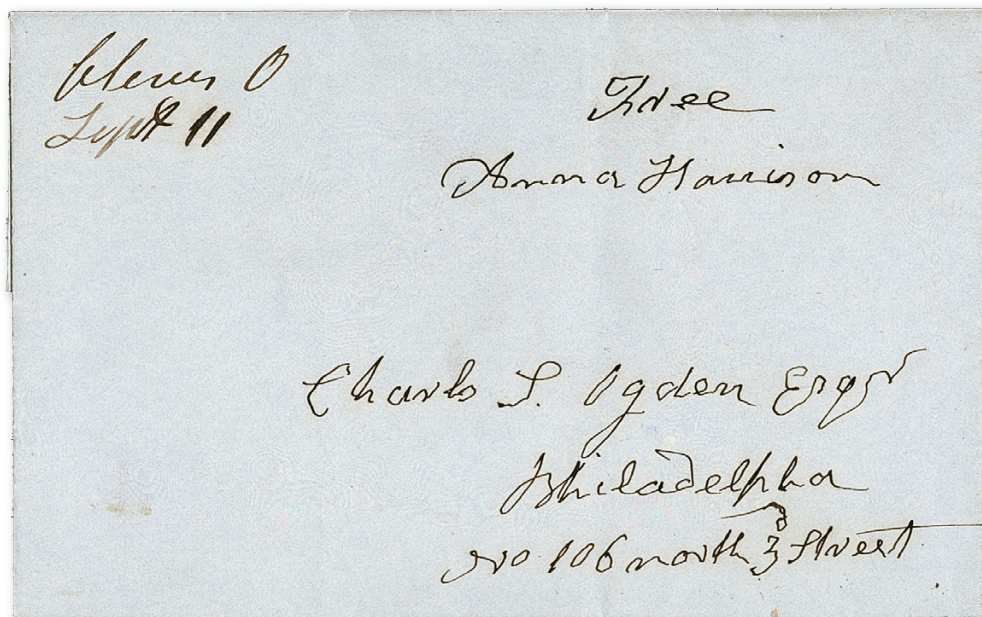 Cleves O
Sept 11
Free
Anna Harrison
Charls S. Ogden Esqr
Philadelpha
No 106 north 3d Street